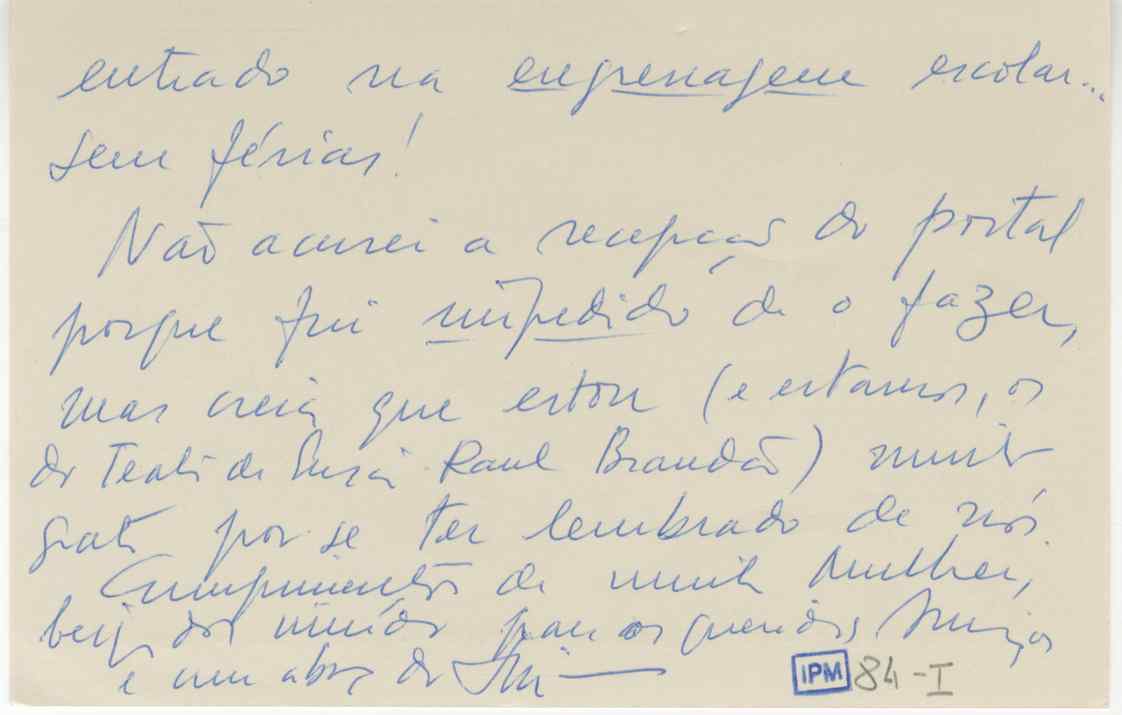 entrado na engrenagem escolar...
sem férias!
Não acusei a recepção do postal
porque fui impedido de o fazer,
mas creia que estou (e estamos, os
do Teatro de Ensaio Raul Brandão) muito
grato por se ter lembrado de nós.
Cumprimentos de minha Mulher,
beijos dos miúdos para os queridos Amigos
e um abraço do
IPM 84-I